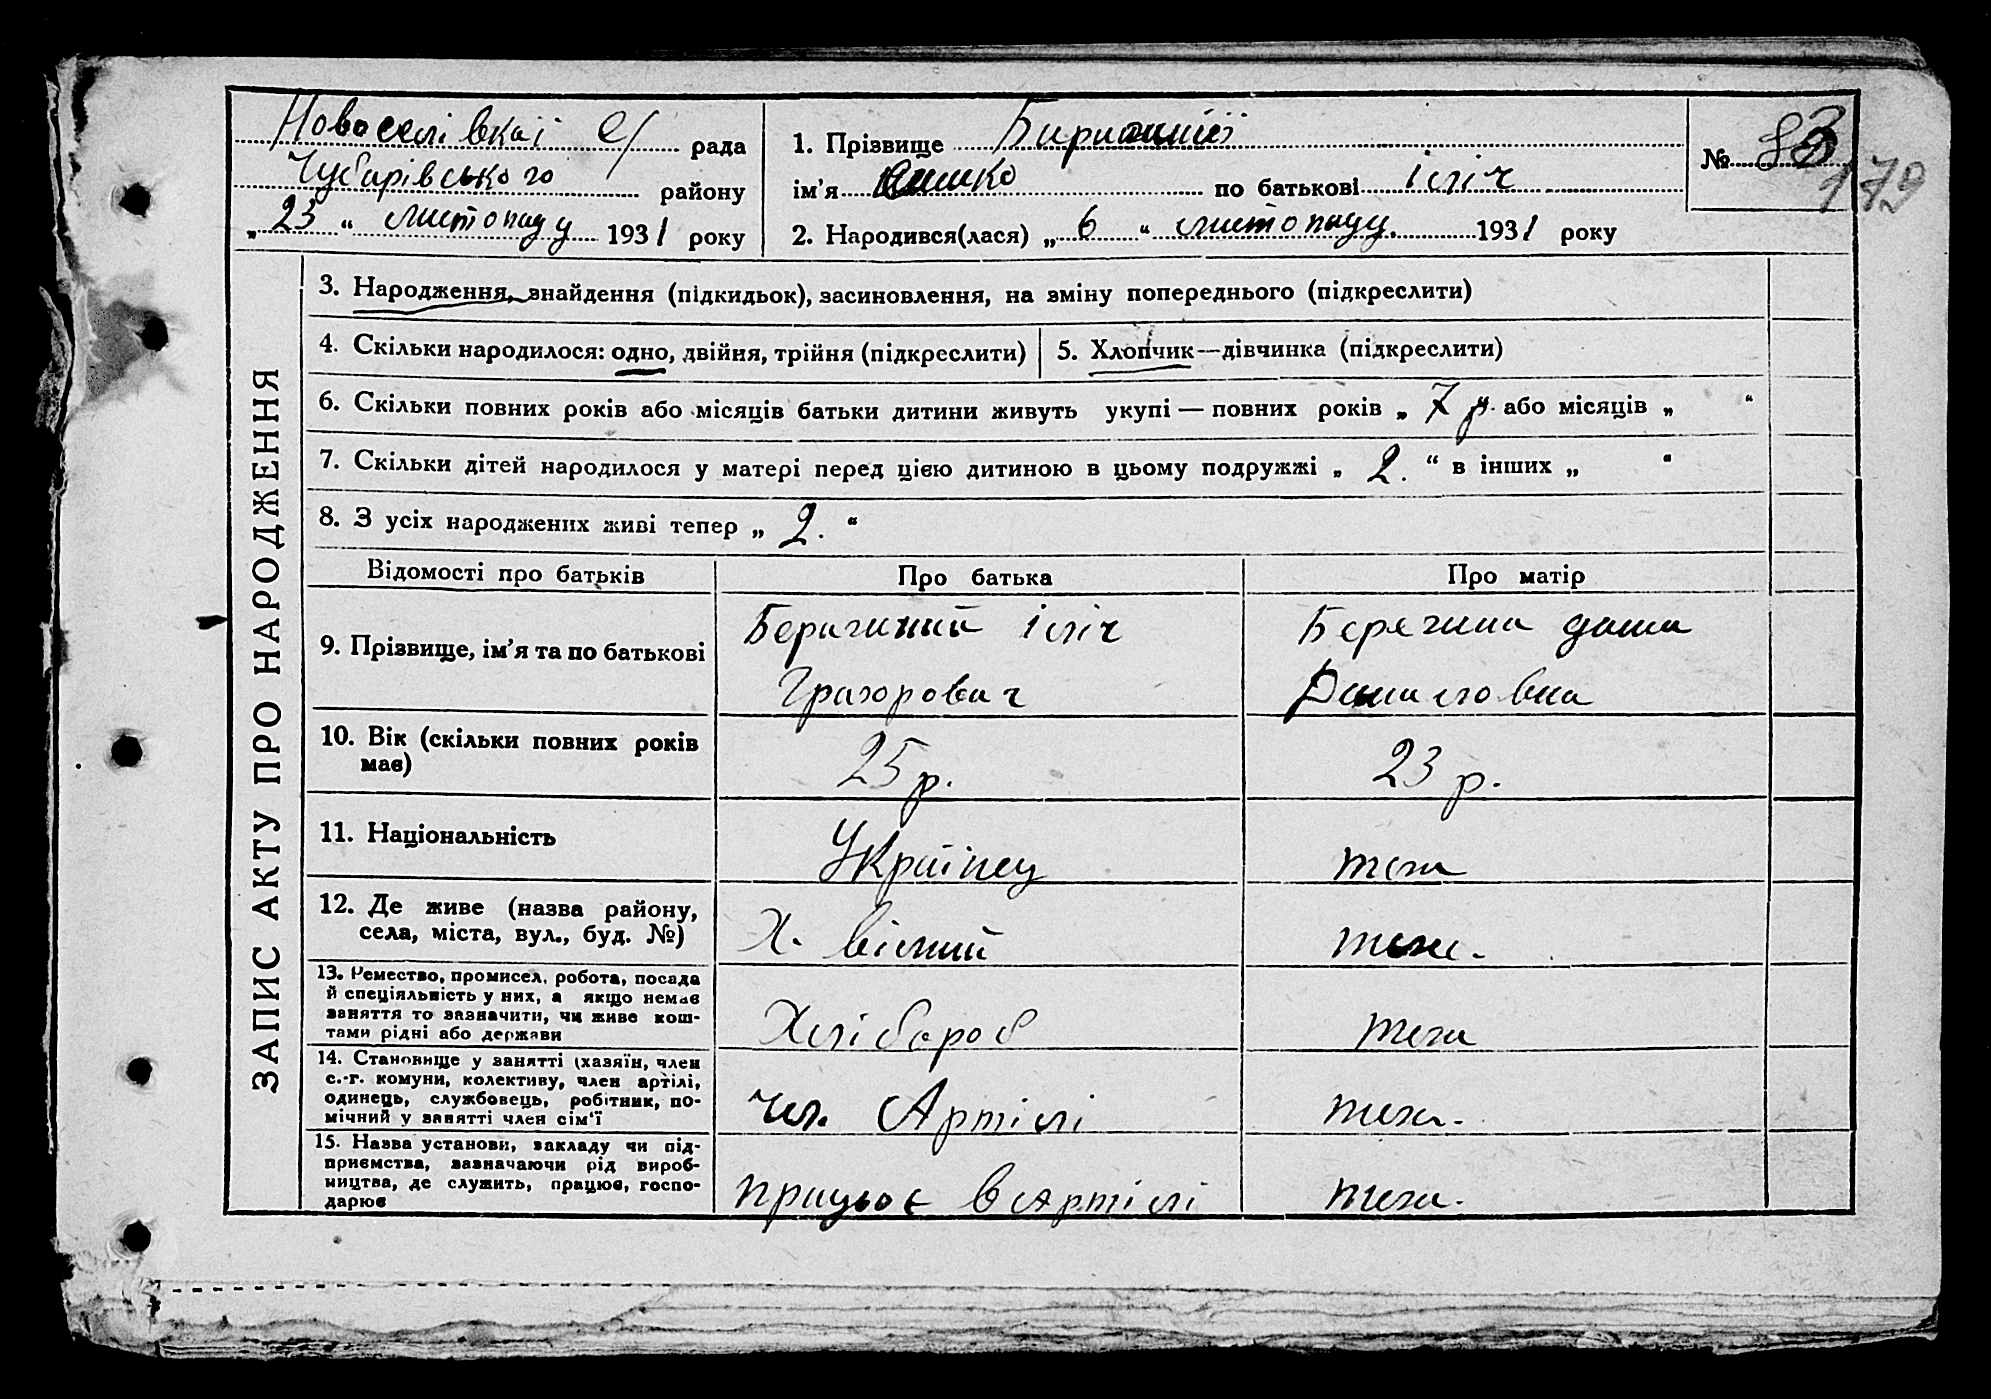 Новоселівкаї с/ рада
Чубарівського району
„ 23 “ листопаду 1931 року
1. Прізвище
ім’я по батькові Ілліч
2. Народився(лася) „ 6 “ листопаду. 1931 року
№ 83
179
ЗАПИС АКТУ ПРО НАРОДЖЕННЯ
3. Народження, знайдення (підкидьок), засиновлення, на зміну попереднього (підкреслити)
4. Скільки народилося: одно, двійня, трійня (підкреслити)
5. Хлопчик—дівчинка (підкреслити)
6. Скільки повних років або місяців батьки дитини живуть укупі — повних років „ 7 р. або місяців „ “
7. Скільки дітей народилося у матері перед цією дитиною в цьому подружжі „ 2. “ в інших „ “
8. З усіх народжених живі тепер „ 2. “
Відомості про батьків
Про батька
Про матір
9. Прізвище, ім’я та по батькові
Іліч
Григорович
Даша
Даниловна
10. Вік (скільки повних років
має)
25 р.
23 р.
11. Національність
Українец
тежа
12. Де живе (назва району,
села, міста, вул., буд. №)
Х. вільний
теже.
13. Ремество, промисел, робота, посада
й спеціяльність у них, а якщо немає
заняття то зазначити, чи живе кош-
тами рідні або держави
Хлібороб
тежа
14. Становище у занятті (хазяїн, член
с.-г. комуни, колективу, член артілі,
одинець, службовець, робітник, по-
мічний у занятті член сім’ї
чл. Артілі
тежа.
15. Назва установи, закладу чи під-
приємства, зазначаючи рід вироб-
ництва, де служить, працює, госпо-
дарює
працьоє в Артілі
тежа.